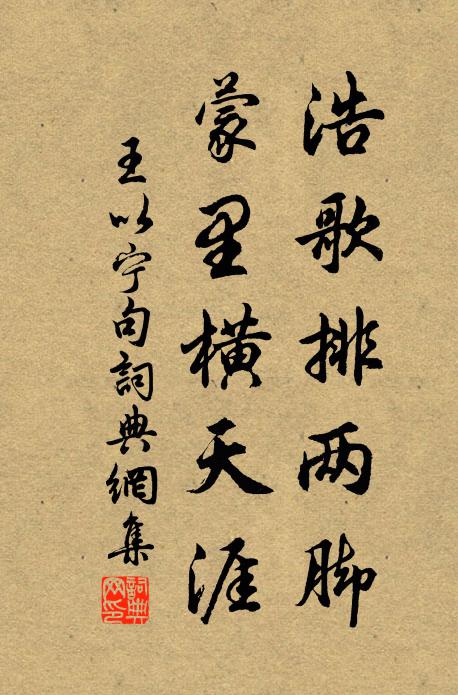 浩歌排两脚
蒙里横天涯
王以宁句詞典網集
詞典网印